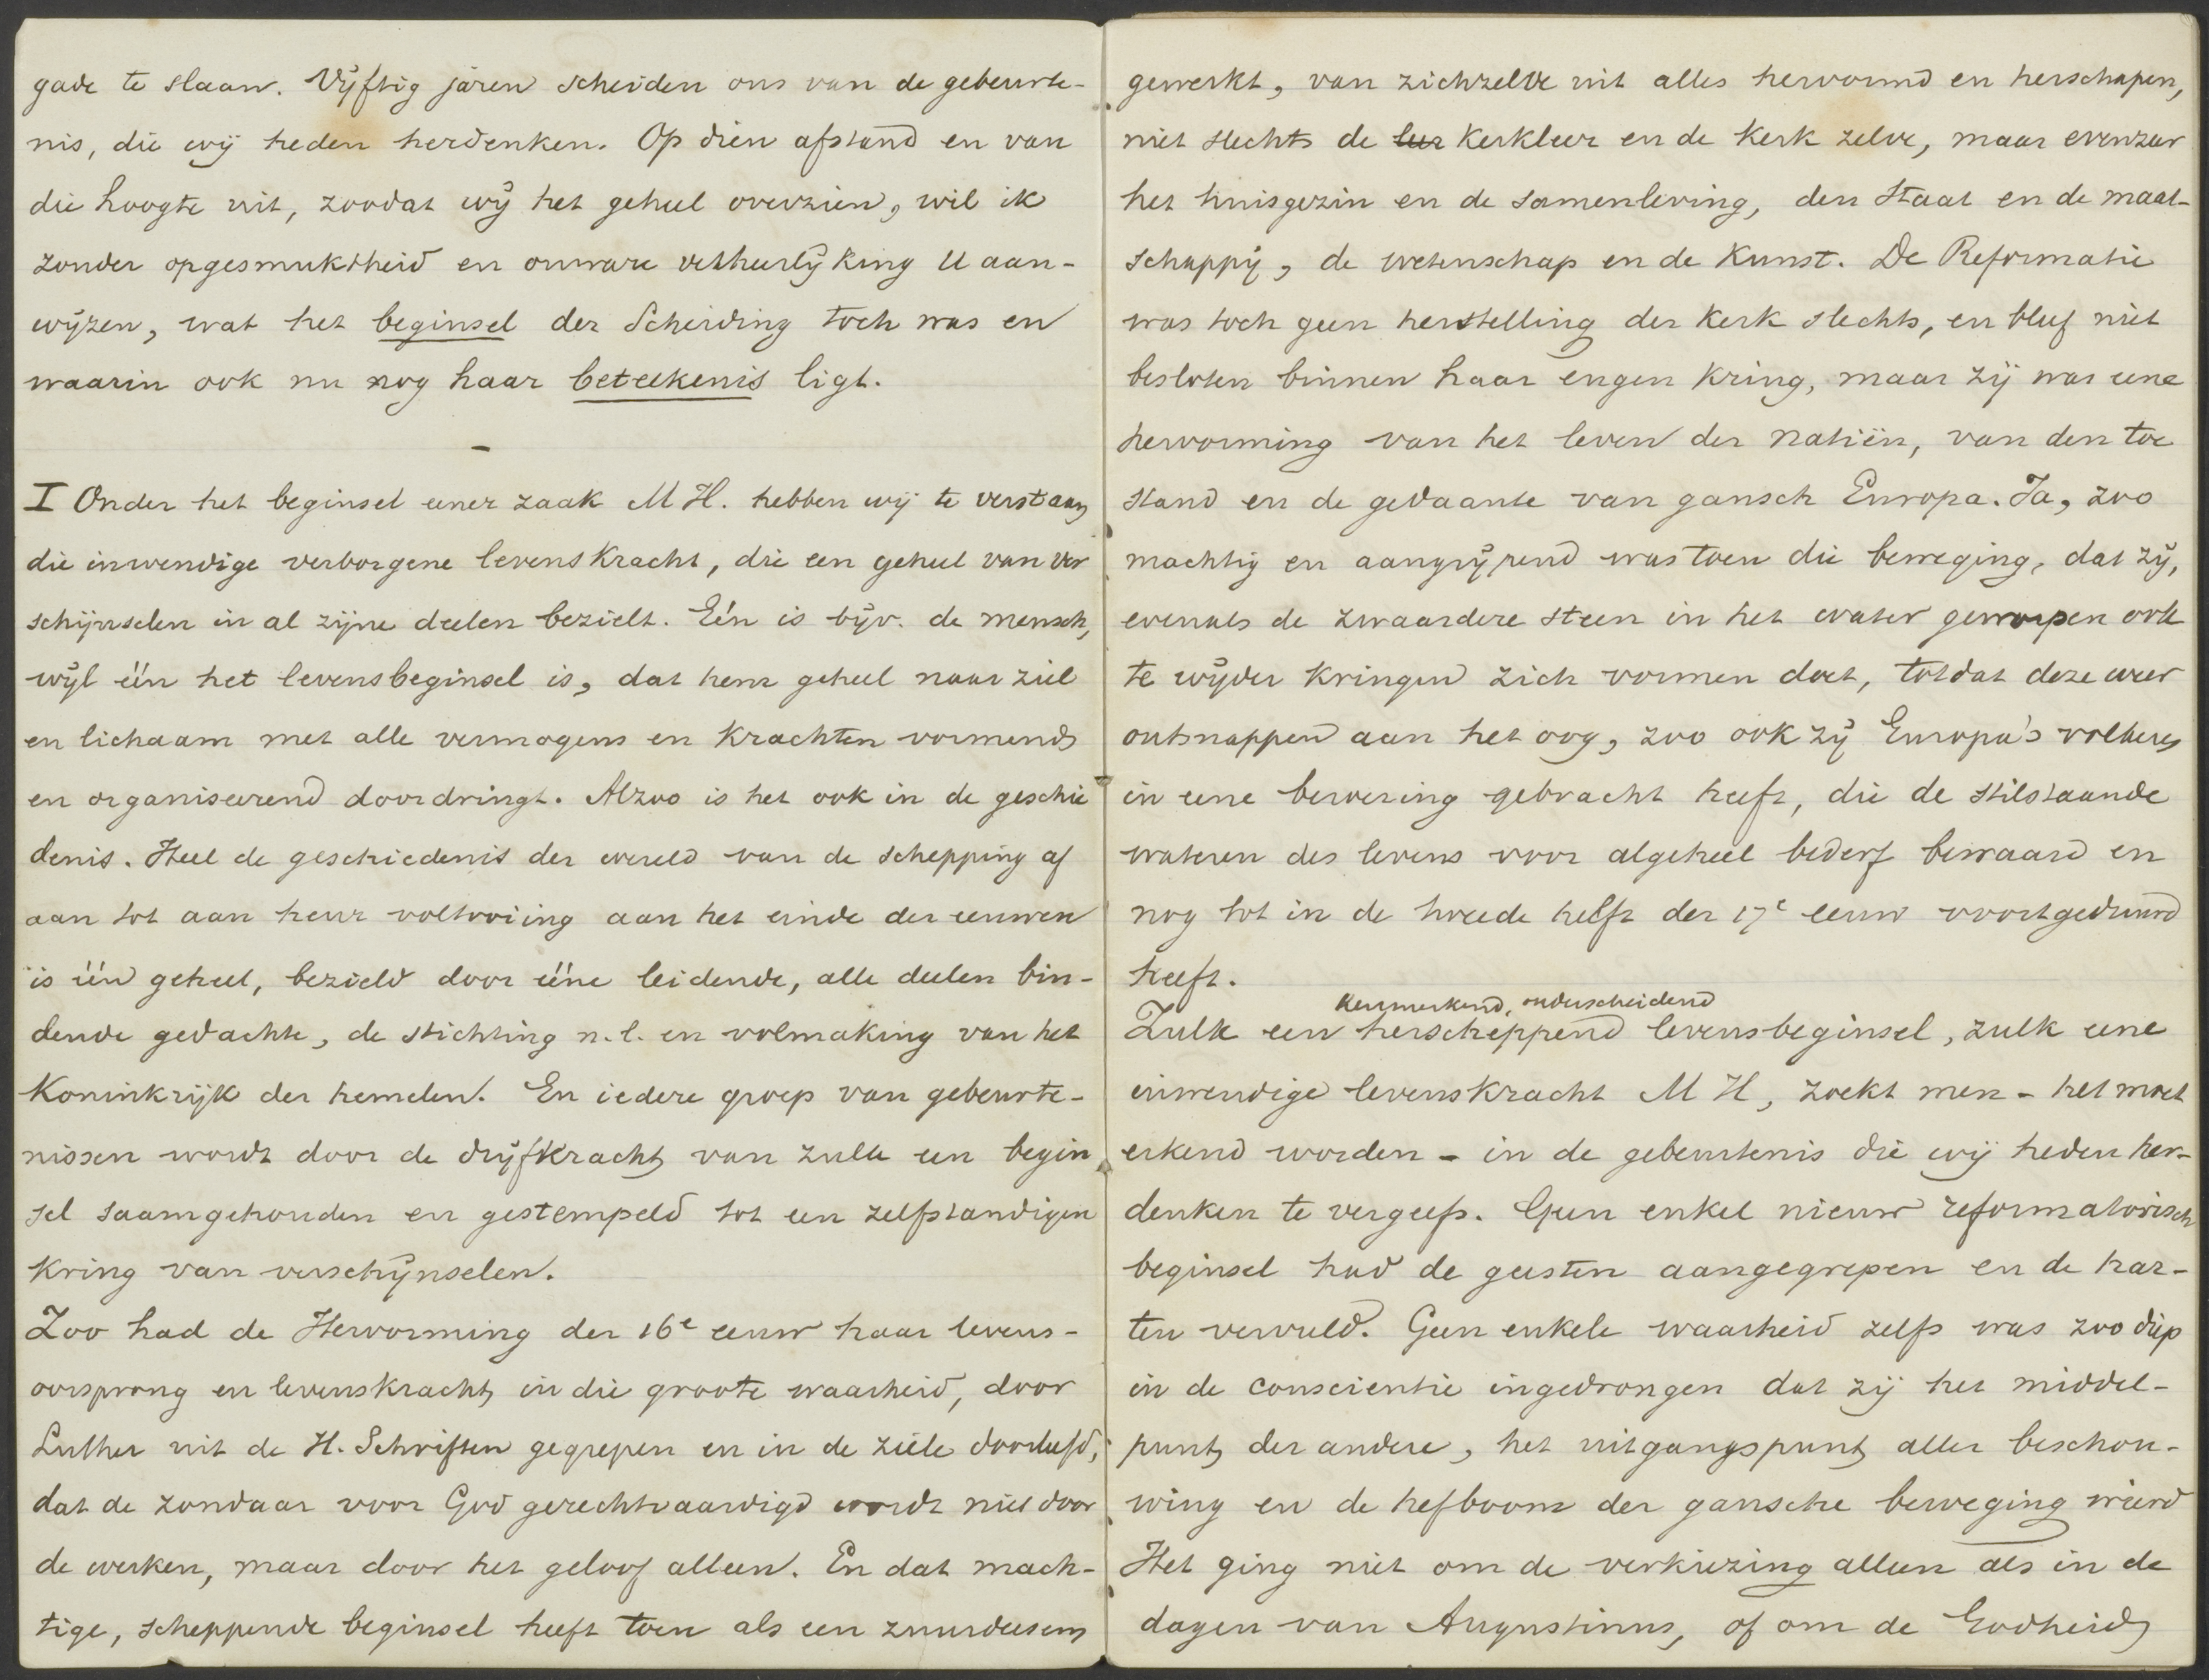 gade te slaan. Vijftig jaren scheiden ons van de gebeurte-
nis, die wij heden herdenken. Op dien afstand en van
die hoogte uit, zoodat wij het geheel overzien, wil ik
zonder opgesmuktheid en onware verheerlijking U aan-
wijzen, wat het beginsel der Scheiding toch was en
waarin ook nu nog haar beteekenis ligt.
-
I Onder het beginsel eener zaak M H. hebben wij te verstaan
die inwendige verborgene levenskracht, die een geheel van ver
schijnselen in al zijne deelen bezielt. Eén is bijv. de mensch,
wijl één het levensbeginsel is, dat hem geheel naar ziel
en lichaam met alle vermogens en krachten vormend
en organiseerend doordringt. Alzoo is het ook in de geschie
denis. Heel de geschiedenis der wereld van de schepping af
aan tot aan heur voltooiing aan het einde der eeuwen
is één geheel, bezield door ééne leidende, alle deelen bin-
dende gedachte, de stichting n.l. en volmaking van het
Koninkrijk der hemelen. En iedere groep van gebeurte-
nissen wordt door de drijfkracht van zulk een begin
sel saamgehouden en gestempeld tot een zelfstandigen
kring van verschijnselen.
Zoo had de Hervorming der 16e eeuw haar levens-
oorsprong en levenskracht in die groote waarheid, door
Luther uit de H. Schriften gegrepen en in de ziele doorleefd,
dat de zondaar voor God gerechtvaardigd wordt niet door
de werken, maar door het geloof alleen. En dat mach-
tige, scheppende beginsel heeft toen als een zuurdeesem
gewerkt, van zichzelve uit alles hervormd en herschapen,
niet slechts de leer kerkleer en de kerk zelve, maar evenzeer
het huisgezin en de samenleving, den Staat en de maat-
schappij, de wetenschap en de kunst. De Reformatie
was toch geen herstelling der kerk slechts, en bleef niet
besloten binnen haar engen kring, maar zij was eene
hervorming van het leven der natiën, van den toe
stand en de gedaante van gansch Europa. Ja, zoo
machtig en aangrijpend was toen die beweging, dat zij,
evenals de zwaardere steen in het water geworpen ook
te wijder kringen zich vormen doet, totdat deze weer
ontsnappen aan het oog, zoo ook zij Europa's volkeren
in eene beroering gebracht heeft, die de stilstaande
wateren des levens voor algeheel bederf bewaard en
nog tot in de tweede helft der 17e eeuw voortgeduurd
heeft.
kenmerkend, onderscheidend
Zulk een herscheppend levensbeginsel, zulk eene
inwendige levenskracht M H, zoekt men - het moet
erkend worden - in de gebeurtenis die wij heden her-
denken te vergeefs. Geen enkel nieuw reformatorisch
beginsel had de geesten aangegrepen en de har-
ten vervuld. Geen enkele waarheid zelfs was zoo diep
in de conscientie ingedrongen dat zij het middel-
punt der andere, het uitgangspunt aller beschou-
wing en de hefboom der gansche beweging wierd
Het ging niet om de verkiezing alleen als in de
dagen van Augustinus, of om de Godheid